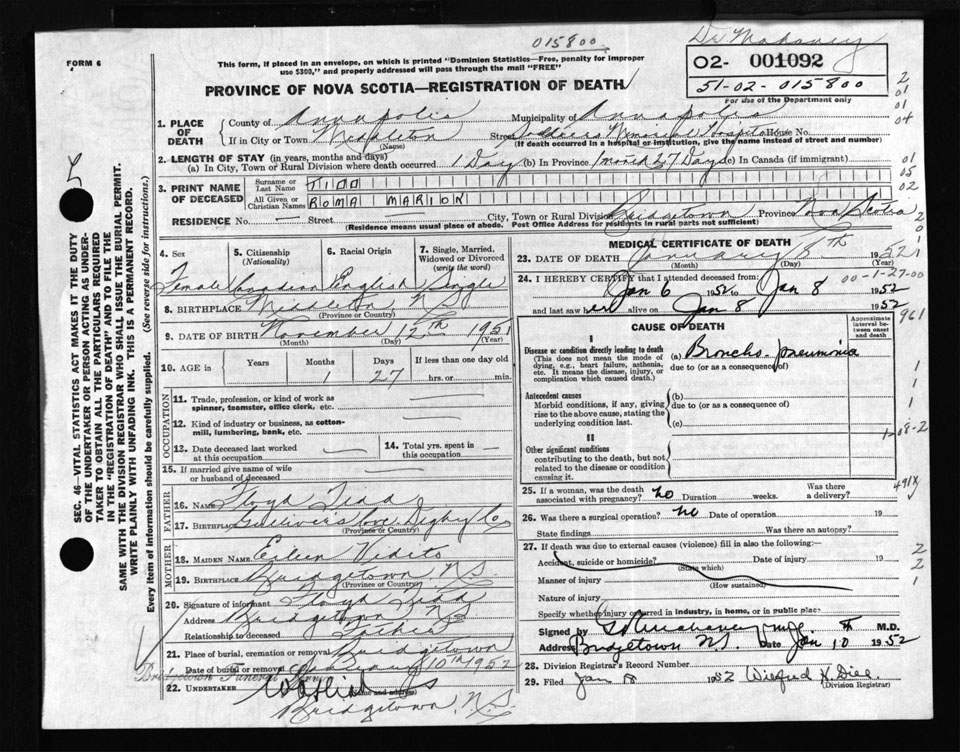 015800
Dr Mahaney
FORM 6
This form, if placed in an envelope, on which is printed "Dominion Statistics—Free, penalty for improper
use $300," and properly addressed will pass through the mail "FREE"
O2- 001092
51-02-015800
For use of the Department only
PROVINCE OF NOVA SCOTIA—REGISTRATION OF DEATH
1. PLACE OF DEATH
County of Annapolis Municipality of Annapolis
If in City or Town Middleton Street Soldiers Memorial Hospital House No.
(Name) (If death occurred in a hospital or institution, give the name instead of street and number)
2. LENGTH OF STAY (in years, months and days)
(a) In City, Town or Rural Division where death occurred 1 Day (b) In Province 1 month 27 Days (c) In Canada (if immigrant)
3. PRINT NAME OF DECEASED
Surname or Last Name TIDD
All Given or Christian Names ROMA MARION
RESIDENCE No. — Street — City, Town or Rural Division Bridgetown Province Nova Scotia
(Residence means usual place of abode. Post Office Address for residents in rural parts not sufficient)
4. Sex Female
5. Citizenship (Nationality) Canadian
6. Racial Origin English
7. Single, Married, Widowed or Divorced (write the word) Single
8. BIRTHPLACE Middleton N.S.
(Province or Country)
9. DATE OF BIRTH November 12th 1951
(Month) (Day) (Year)
10. AGE in Years Months Days If less than one day old
1 27 hrs. or min.
OCCUPATION
11. Trade, profession, or kind of work as
spinner, teamster, office clerk, etc.
12. Kind of industry or business, as cotton-
mill, lumbering, bank, etc.
13. Date deceased last worked at this occupation
14. Total yrs. spent in this occupation
15. If married give name of wife
or husband of deceased
FATHER
16. Name Lloyd Tidd
17. Birthplace Gullivers Cove Digby Co
(Province or Country)
MOTHER
18. MAIDEN NAME Eileen Videto
19. BIRTHPLACE Bridgetown N.S.
(Province or Country)
20. Signature of informant Lloyd Tidd
Address Bridgetown NS
Relationship to deceased Father
21. Place of burial, cremation or removal Bridgetown
Date of burial or removal January 10th 1952
Bridgetown Funeral
22. UNDERTAKER
(Name and address)
Bridgetown, N.S.
MEDICAL CERTIFICATE OF DEATH
23. DATE OF DEATH January 8th 1952
(Month) (Day) (Year)
24. I HEREBY CERTIFY that I attended deceased from: 00-1-27-00
Jan 6 1952 to Jan 8 1952
and last saw her alive on Jan 8 1952
CAUSE OF DEATH
Approximate interval between onset and death
I
Disease or condition directly leading to death
(This does not mean the mode of
dying, e.g., heart failure, asthenia,
etc. It means the disease, injury, or
complication which caused death.)
(a) Broncho-pneumonia
due to (or as a consequence of)
Antecedent causes
Morbid conditions, if any, giving
rise to the above cause, stating the
underlying condition last.
(b)
due to (or as a consequence of)
(c)
II
Other significant conditions
contributing to the death, but not
related to the disease or condition
causing it.
25. If a woman, was the death associated with pregnancy? no Duration weeks. Was there a delivery?
26. Was there a surgical operation? no Date of operation 19
State findings Was there an autopsy?
27. If death was due to external causes (violence) fill in also the following:—
Accident, suicide or homicide? Date of injury 19
(State which)
Manner of injury
(How sustained)
Nature of injury
Specify whether injury occurred in industry, in home, or in public place
Signed by M.D.
Address Bridgetown N.S. Date Jan 10 1952
28. Division Registrar's Record Number
29. Filed Jan 8 1952
(Division Registrar)
SEC. 46—VITAL STATISTICS ACT MAKES IT THE DUTY
OF THE UNDERTAKER OR PERSON ACTING AS UNDER-
TAKER TO OBTAIN ALL THE PARTICULARS REQUIRED
IN THE "REGISTRATION OF DEATH" AND TO FILE THE
SAME WITH THE DIVISION REGISTRAR WHO SHALL ISSUE THE BURIAL PERMIT.
WRITE PLAINLY WITH UNFADING INK. THIS IS A PERMANENT RECORD.
Every item of information should be carefully supplied. (See reverse side for instructions.)
2
01
01
04
01
05
02
961
491X
2
2
1